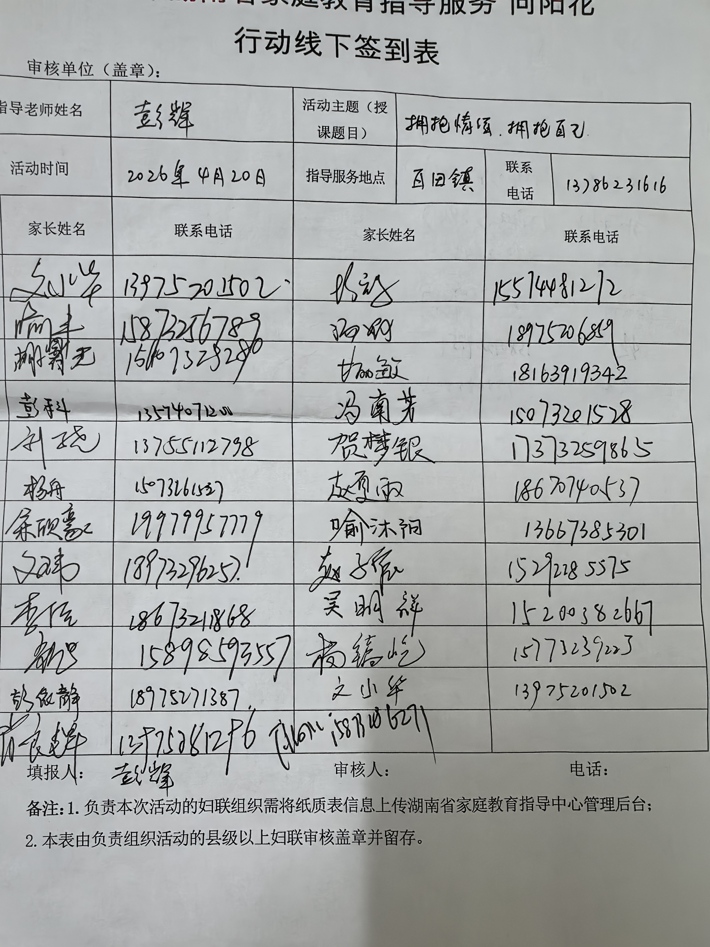 湖南省家庭教育指导服务"向阳花
行动线下签到表
审核单位（盖章）：
指导老师姓名 彭辉 活动主题（授课题目） 拥抱情绪、拥抱自己
活动时间 2026年4月20日 指导服务地点 百田镇 联系电话 13786231616
家长姓名 联系电话 家长姓名 联系电话
文小华 13975201502 15574481272
15873256789 18975206859
18163919342
彭科 13574071200 冯南芳 15073201528
13755112798 贺梦银 17373259865
杨舟 15073261537 赵夏雨 18670740537
余欣豪 19979957779 喻沐阳 13667385301
文玮 18973296257 赵子宸 15292285575
李恒 18673211868 吴明祥 15200382667
15898593557 杨镐屹 15773239223
彭欣静 18975271387 文小华 13975201502
填报人： 彭辉 审核人： 电话：
备注：1. 负责本次活动的妇联组织需将纸质表信息上传湖南省家庭教育指导中心管理后台；
2. 本表由负责组织活动的县级以上妇联审核盖章并留存。